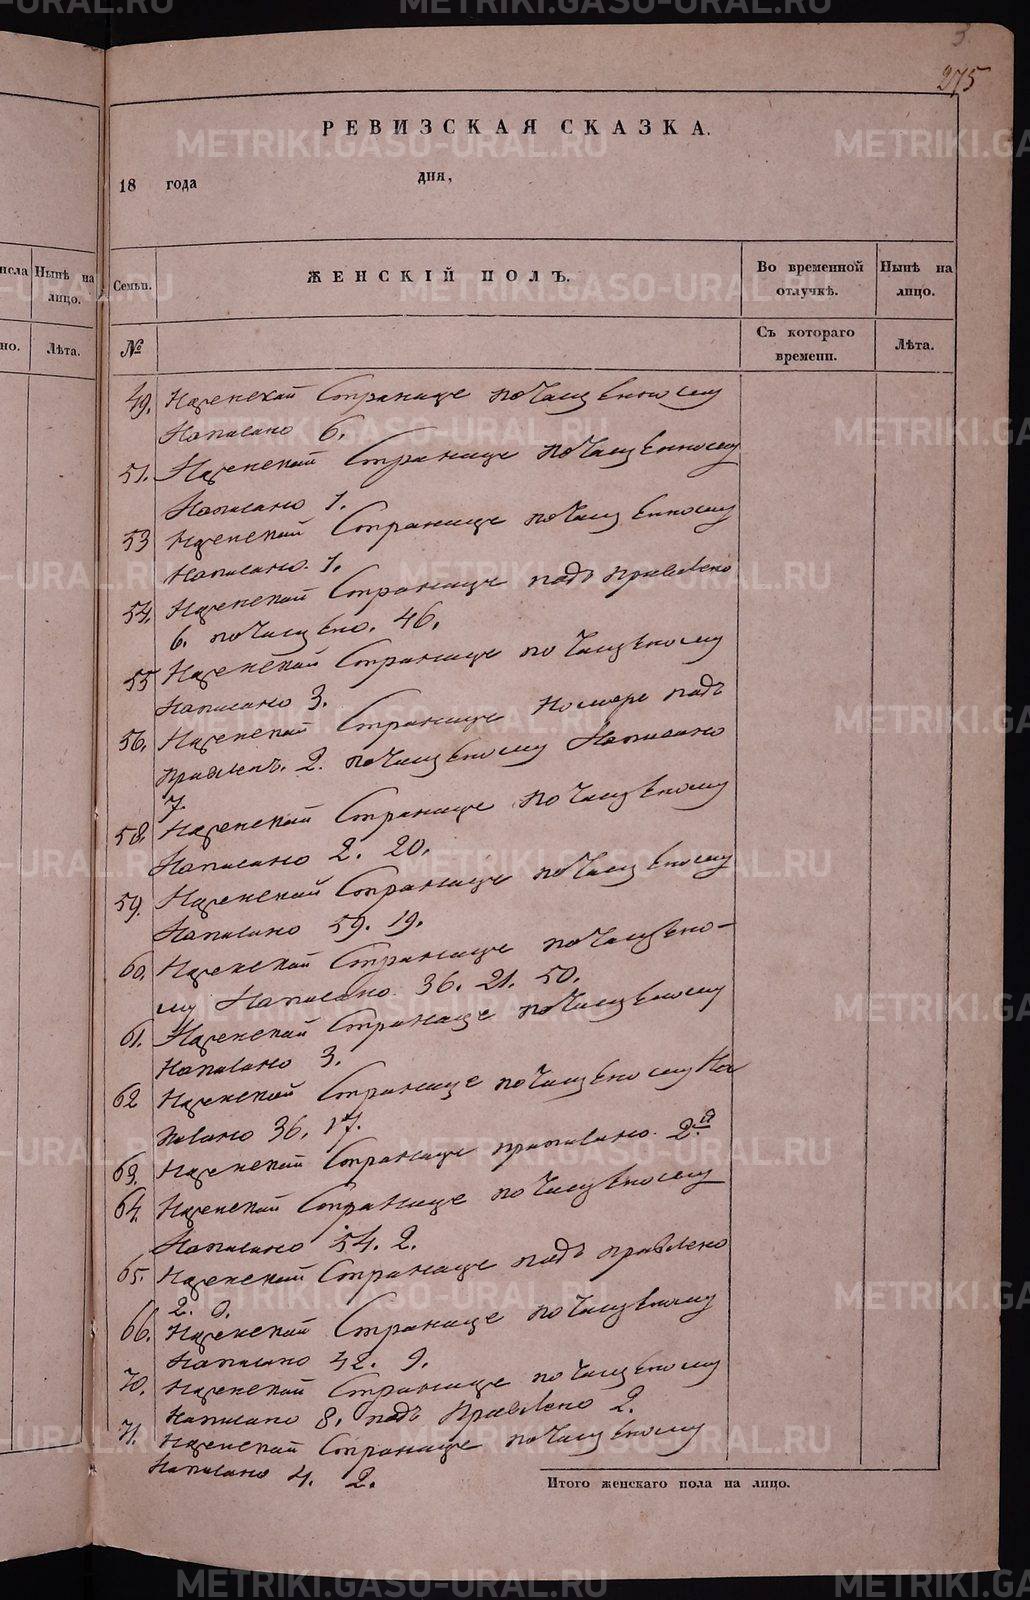 3.
275
РЕВИЗСКАЯ СКАЗКА.
18 года дня,
исла Нынѣ на лицо.
Семьи. ЖЕНСКІЙ ПОЛЪ. Во временной отлучкѣ. Нынѣ на лицо.
но. Лѣта.
№ Съ котораго времени. Лѣта.
49. Наженской Странице почищенному
Написано 6.
51. Наженской Странице почищенному
Написано 1.
53 Наженской Странице почищенному
Написано. 1.
54. Наженской Странице подъ правлено
6. почищено. 46.
55 Наженской Странице по чищеному
Написано 3.
56. Наженской Странице Номера подъ
правленъ. 2. почищеному Написано
7.
58. Наженской Странице по чищеному
Написано 2. 20.
59. Наженской Странице почищеному
Написано 59. 19.
60. Наженской Странице почищено-
му Написано 36. 21. 50.
61. Наженской Странице почищеному
Написано 3.
62 Наженской Странице почищеному На
писано 36. 17.
63. Наженской Странице приписано. 2.я
64. Наженской Странице по чищеному
Написано 54. 2.
65. Наженской Странице подъ правлено
2. 9.
66. Наженской Странице по чищеному
Написано 42. 9.
70. Наженской Странице по чищеному
Написано 8. подъ Правлено 2.
71. Наженской Странице по чищеному
Написано 4. 2.
Итого женскаго пола на лицо.
METRIKI.GASO-URAL.RU